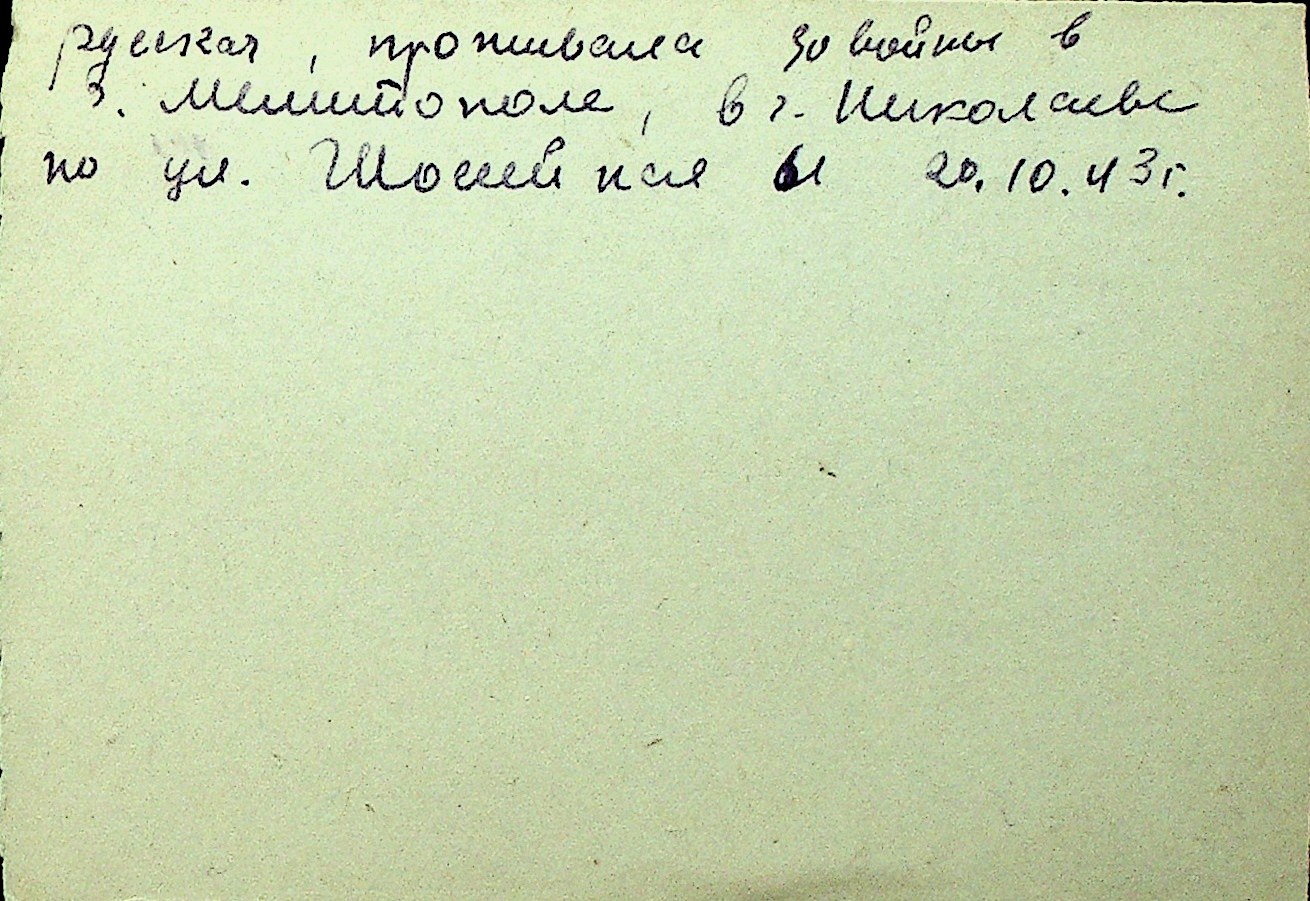 русская, проживала до войны в
г. Мелитополе, в г. Николаеве
по ул. Шоссейная 61 20.10.43г.